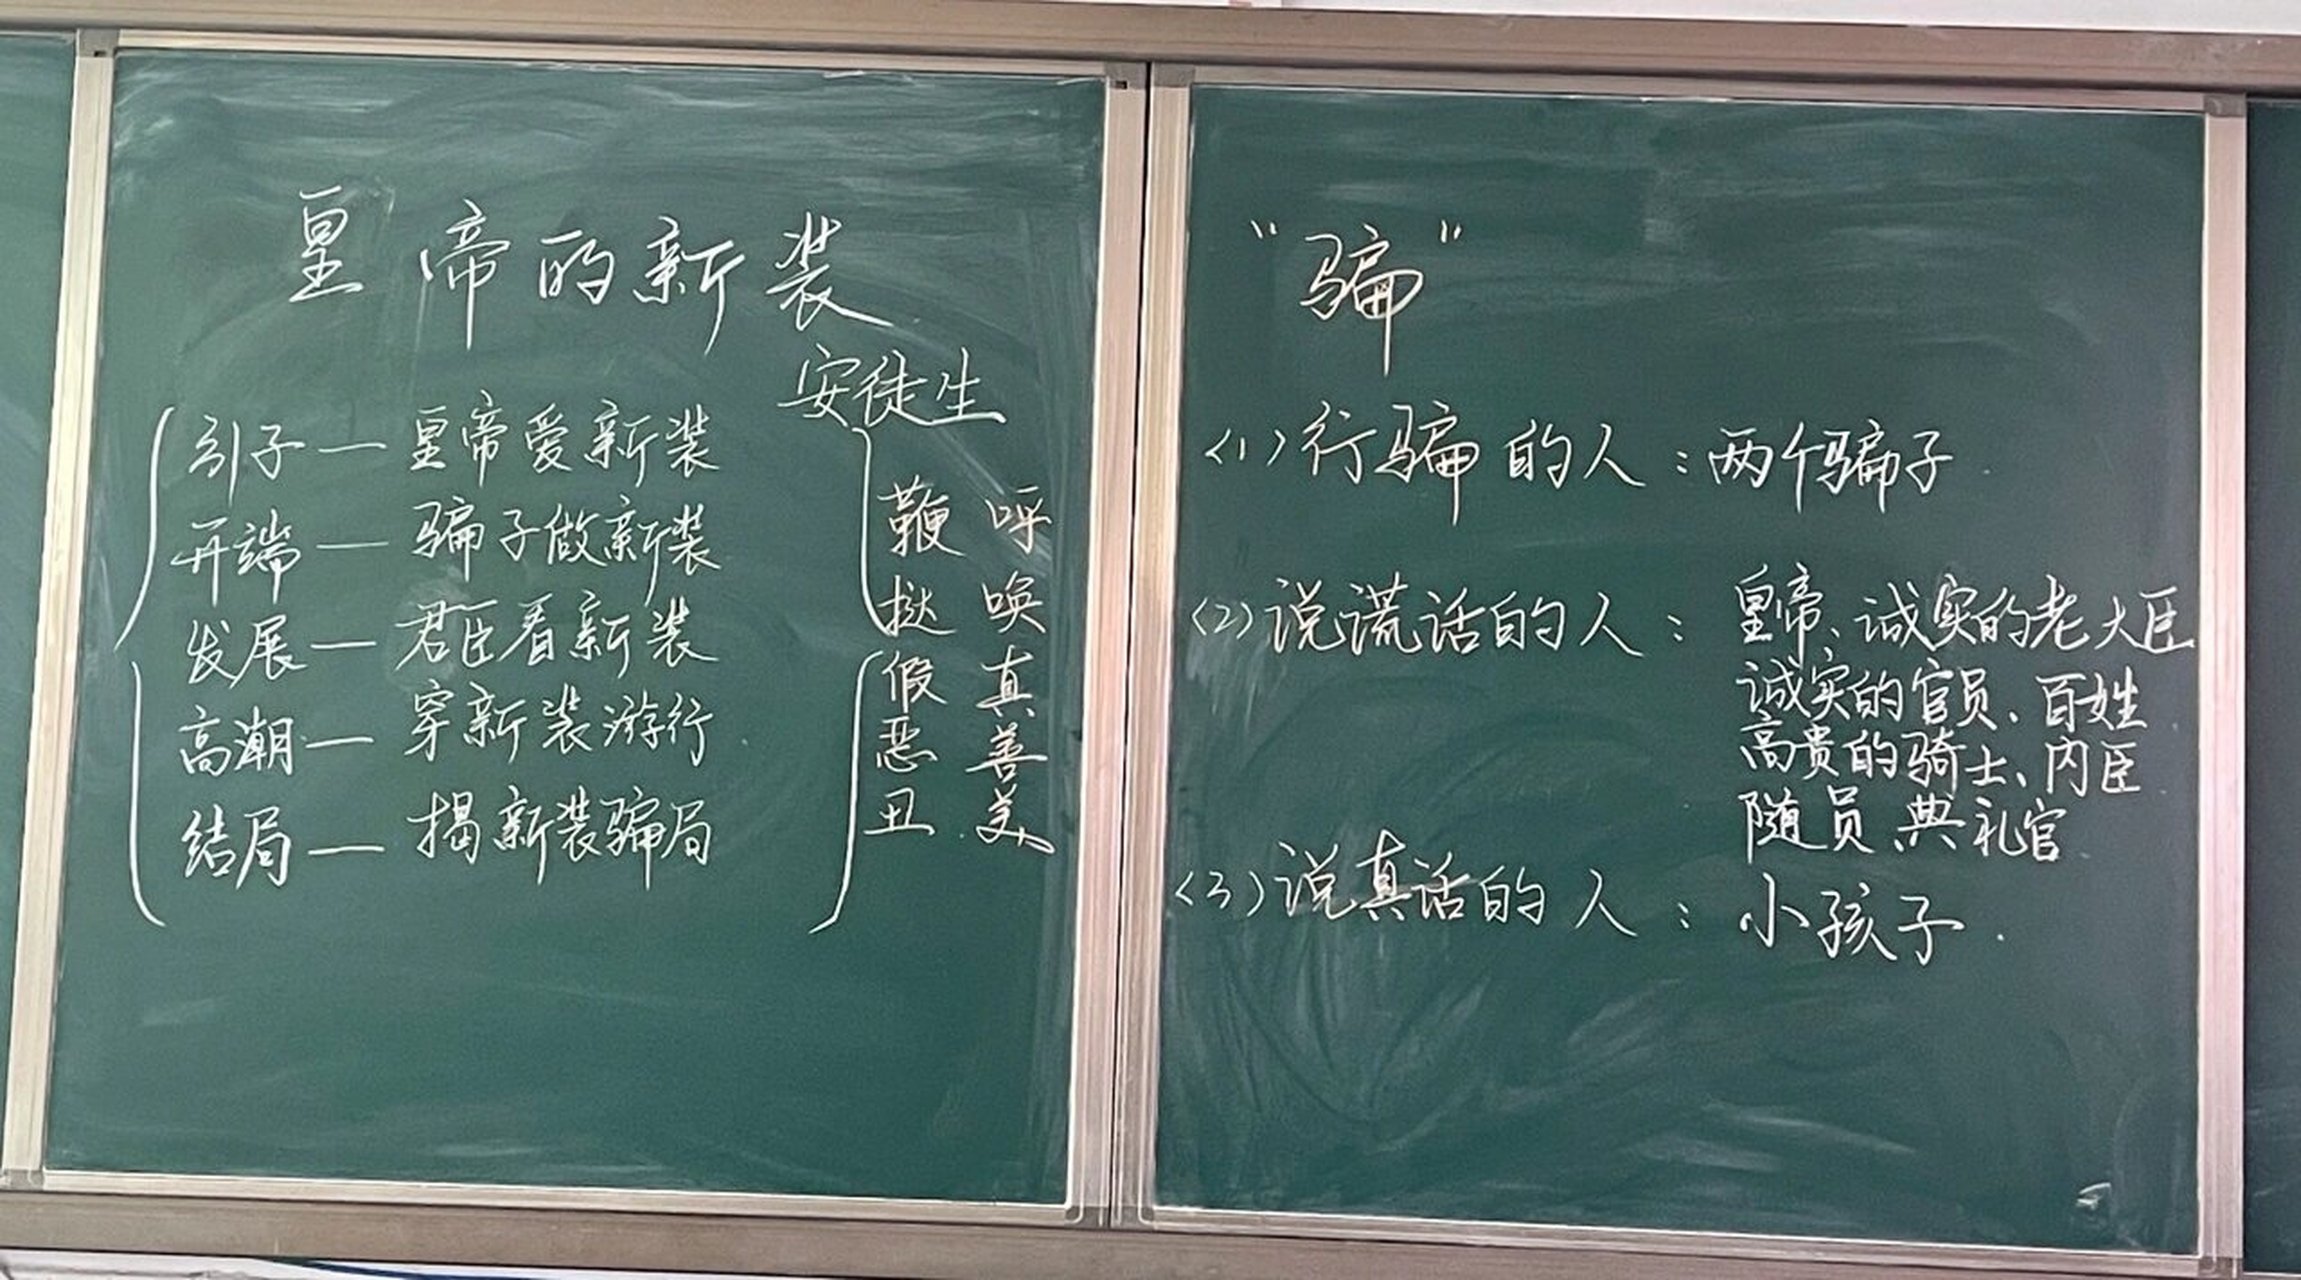 皇帝的新装
安徒生
引子—皇帝爱新装
开端—骗子做新装
发展—君臣看新装
高潮—穿新装游行
结局—揭新装骗局
鞭挞假恶丑
呼唤真善美
“骗”
(1)行骗的人：两个骗子.
(2)说谎话的人：皇帝、诚实的老大臣
诚实的官员、百姓
高贵的骑士、内臣
随员、典礼官
(3)说真话的人：小孩子.